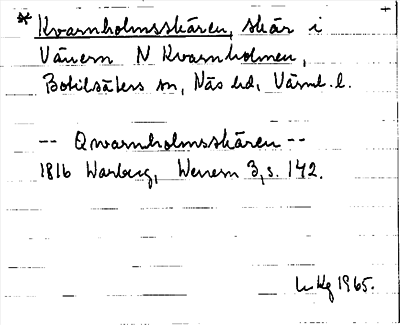 * Kvarnholmsskären, skär i
Vänern N Kvarnholmen,
Botilsäters sn, Näs hd, Värml. l.
-- Qwarnholmsskären --
1816 Warberg, Wenern 3, s. 142.
1965.